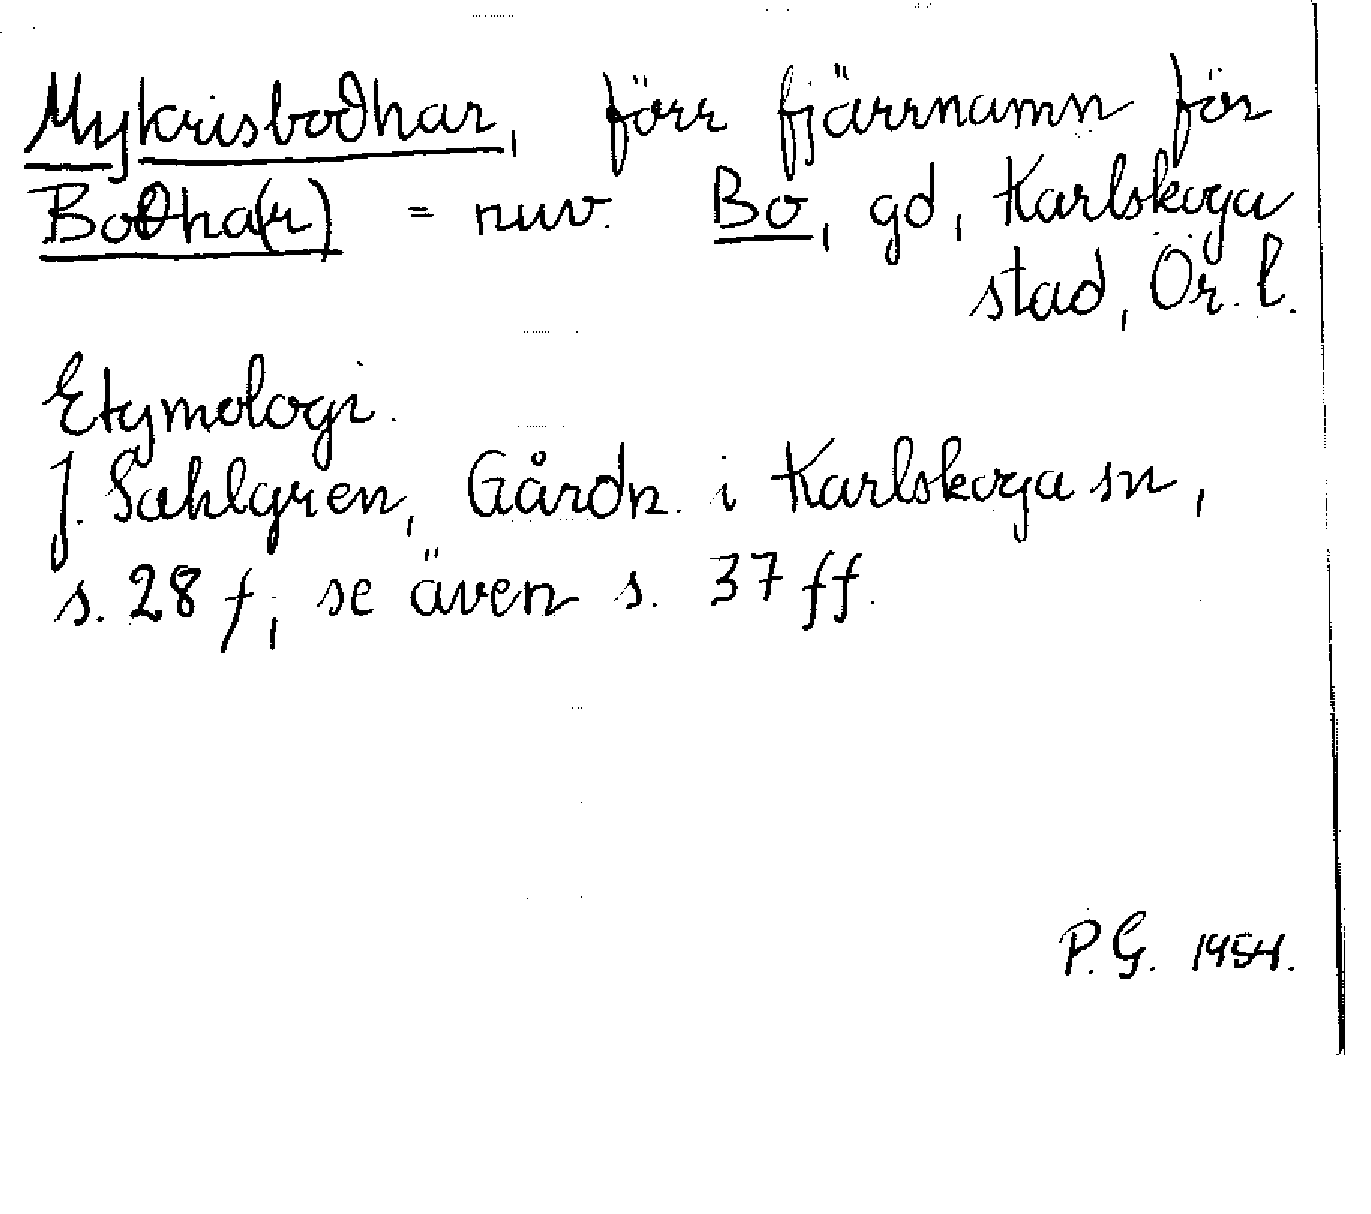 Mykrisbodhar, förr fjärrnamn för
Bodha(r) = nuv. Bo, gd, Karlskoga
stad, Ör. l.
Etymologi.
J. Sahlgren, Gårdn. i Karlskoga sn,
s. 28 f, se även s. 37 ff.
P. G. 1954.